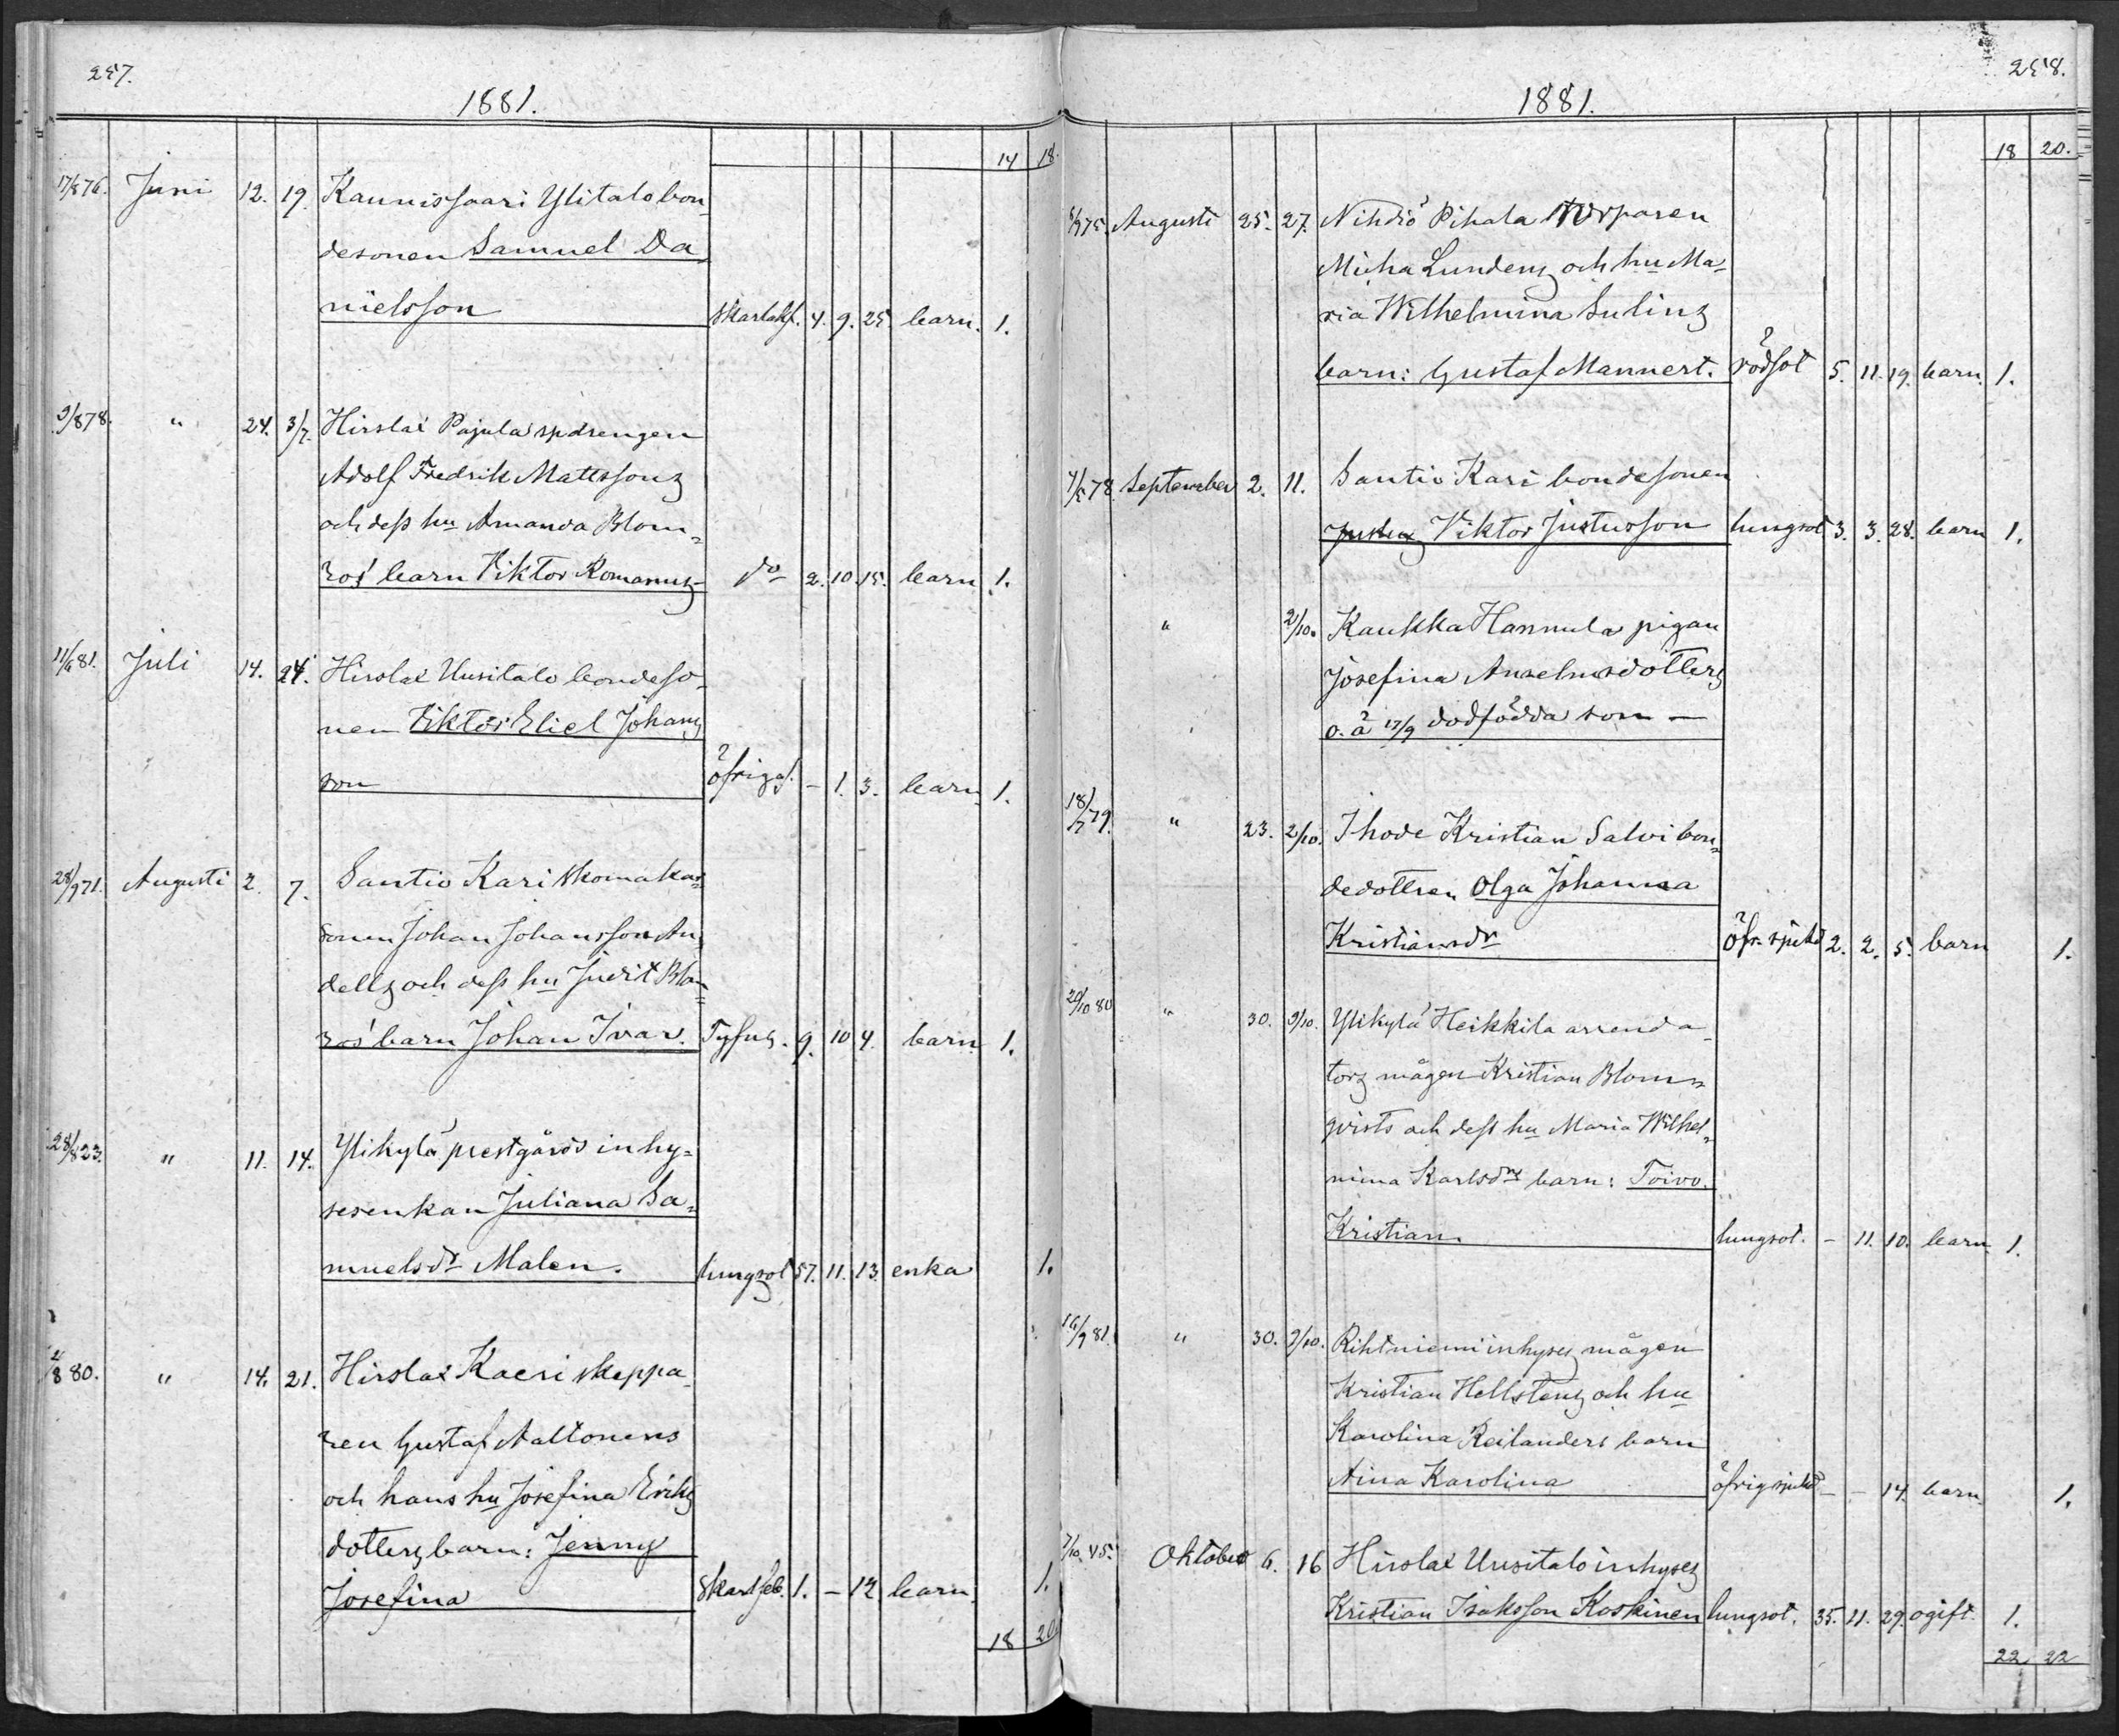 257.
1881.
14 18.
17/8 76. Juni 12. 19. Kaunissaari Ylitalo bon-
desonen Samuel Da-
nielsson skarlakf. 4. 9. 25 barn. 1.
9/8 78. " 24. 3/7. Hirslax Pajula spdrengen
Adolf Fredrik Mattssons
och dess hu Amanda Blom-
ros' barn Viktor Romanus do 2. 10. 15. barn 1.
11/6 81. Juli 14. 24. Hirslax Uusitalo bondeso-
nen Viktor Eliel Johans
son öfrig s. - 1. 3. barn 1.
28/9 71. Augusti 2. 7. Santio Kari skomakar-
sonen Johan Johansson An-
dells och dess hu Judit Blom-
ros' barn Johan Ivar. Tyfus. 9. 10 4. barn 1.
28/8 23. " 11. 14. Ylikylä prestgårds inhy-
sesenkan Juliana Sa-
muelsdr Malen. lungsot 57. 11. 13. enka 1.
2/8 80. " 14. 21. Hirslax Kaeri skeppa-
ren Gustaf Aaltonens
och hans hu Josefina Eriks
dotters barn: Jenny
Josefina Skarlfeb. 1. - 12 barn 1.
18 20.
258.
1881.
18 20.
8/9 75. Augusti 25. 27. Nihdiö Pihala torparen
Micha Lundens och hu Ma-
ria Wilhelmina Sulins
barn: Gustaf Mannert. rödsot 5. 11. 19. barn. 1.
4/5 78 September 2. 11. Santio Kari bondesonen
Viktor Justusson lungsot 3. 3. 28. barn 1.
" 2/10. Kaukka Hannula pigan
Josefina Anselmsdotters
o. ä 17/9 dödfödda son —
18/7 79. " 23. 2/10. Ihode Kristian Salvi bon-
dedottren Olga Johanna
Kristiansdr öfr. sjukd 2. 2. 5. barn 1.
20/10 80 " 30. 9/10. Ylikylä Heikkilä arrenda-
tors mågen Kristian Blom-
qvists och dess hu Maria Wilhel-
mina Karlsdrs barn: Toivo
Kristian lungsot. - 11. 10. barn 1.
16/9 81. " 30. 9/10. Rihtniemi inhyses mågen
Kristian Hellstens och hu
Karolina Reilanders barn
Aina Karolina öfrig sjukd - - 14. barn 1.
7/10 45. Oktober 6. 16 Hirslax Uusitalo inhyses
Kristian Isaksson Koskinen lungsot. 35. 11. 29. ogift. 1.
22 22